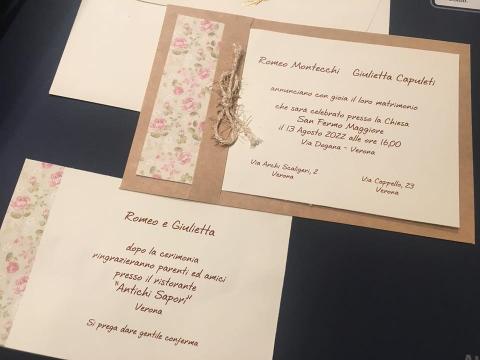 Romeo Montecchi Giulietta Capuleti
annunciano con gioia il loro matrimonio
che sarà celebrato presso la Chiesa
San Fermo Maggiore
il 13 Agosto 2022 alle ore 16,00
Via Dogana - Verona
Via Archi Scaligeri, 2
Verona
Via Cappello, 23
Verona
Romeo e Giulietta
dopo la cerimonia
ringrazieranno parenti ed amici
presso il ristorante
"Antichi Sapori"
Verona
Si prega dare gentile conferma